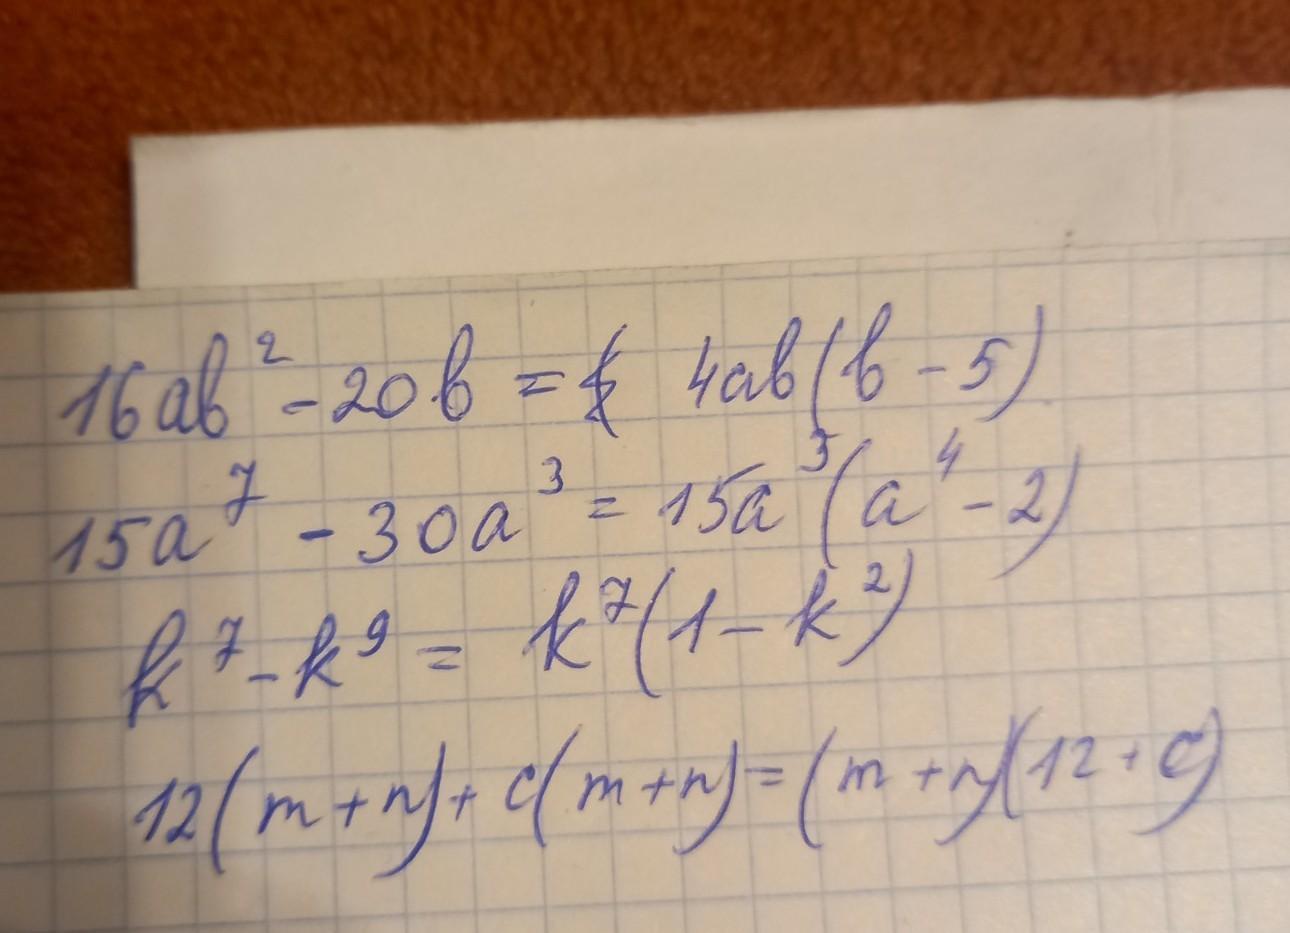 16ab² - 20b = 4ab(b - 5)
15a⁷ - 30a³ = 15a³(a⁴ - 2)
k⁷ - k⁹ = k⁷(1 - k²)
12(m+n) + c(m+n) = (m+n)(12+c)